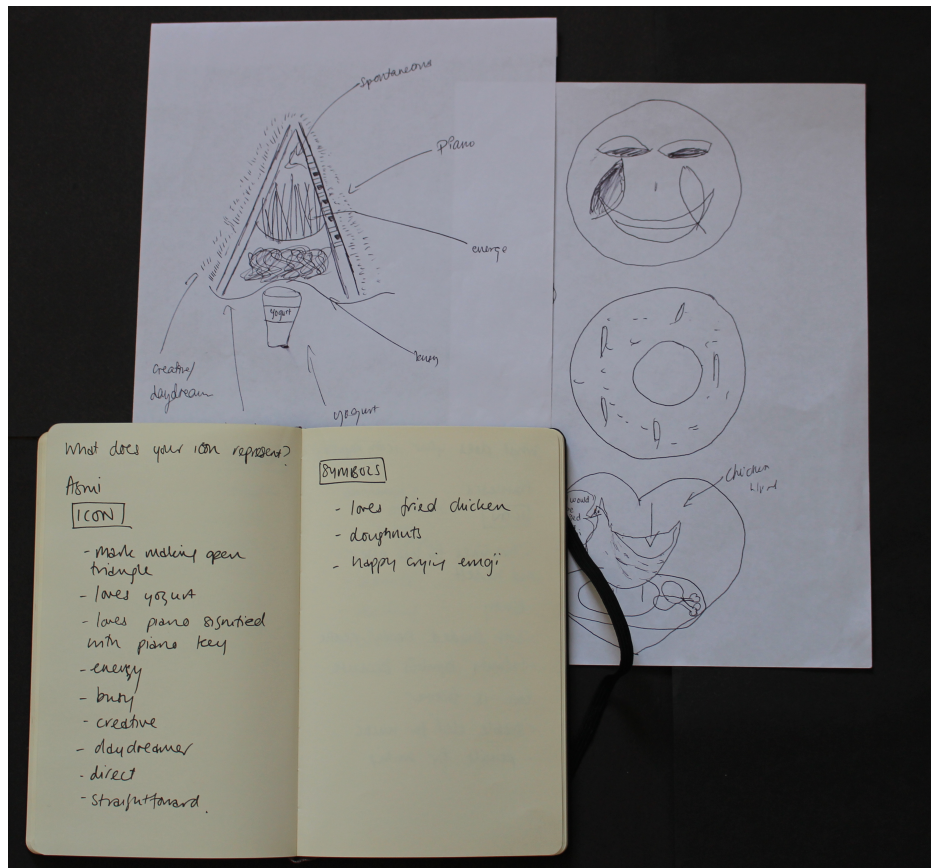 Spontaneous
Piano
energy
busy
yogurt
yogurt
Creative/
daydream
Chicken
would
What does your icon represent?
Asmi
ICON
- mark making open
triangle
- loves yogurt
- loves piano signified
with piano key
- energy
- busy
- creative
- daydreamer
- direct
- straightforward.
SYMBOLS
- loves fried chicken
- doughnuts
- happy crying emoji